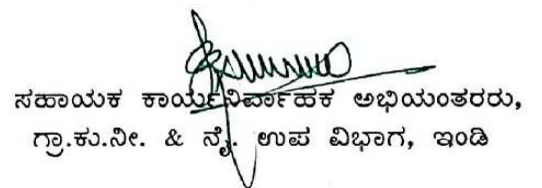 ಸಹಾಯಕ ಕಾರ್ಯನಿರ್ವಾಹಕ ಅಭಿಯಂತರರು,
ಗ್ರಾ.ಕು.ನೀ. & ನೈ. ಉಪ ವಿಭಾಗ, ಇಂಡಿ